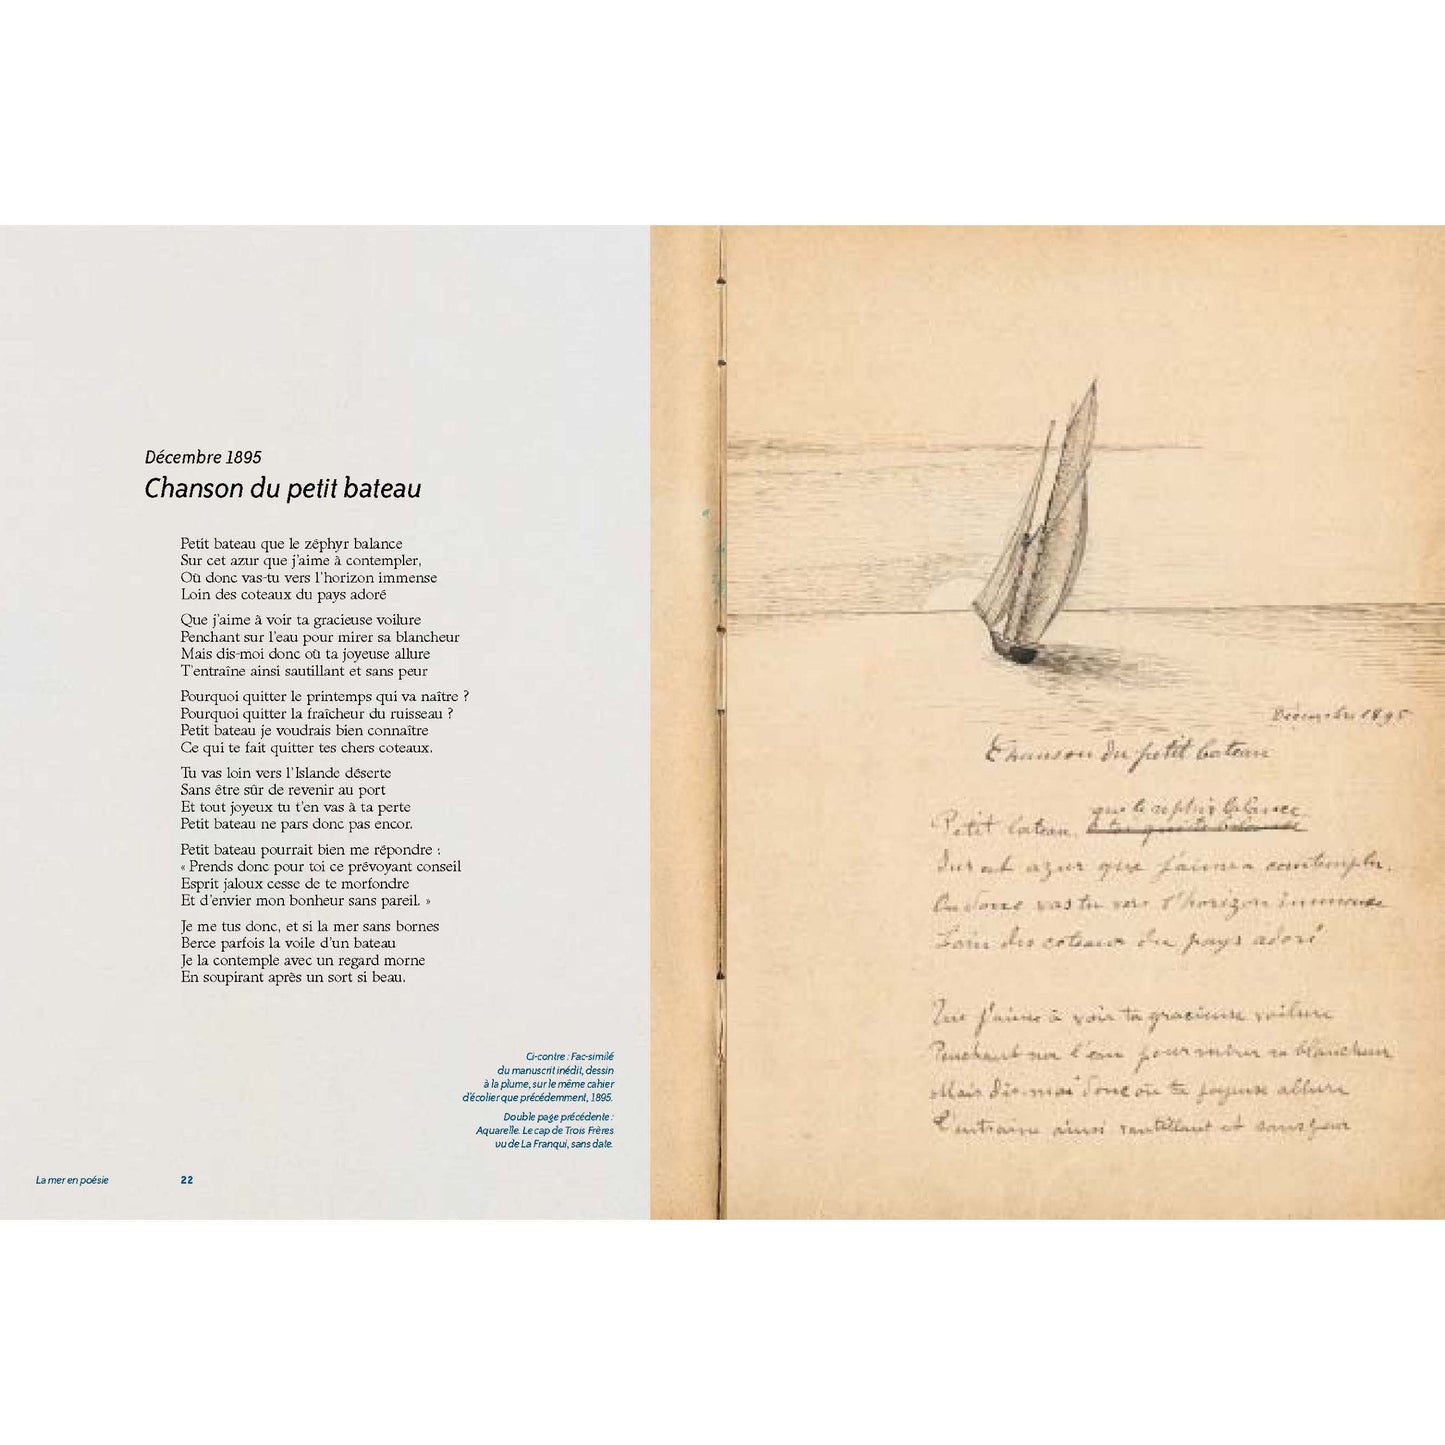 Décembre 1895
Chanson du petit bateau
Petit bateau que le zéphyr balance
Sur cet azur que j'aime à contempler,
Où donc vas-tu vers l'horizon immense
Loin des coteaux du pays adoré
Que j'aime à voir ta gracieuse voilure
Penchant sur l'eau pour mirer sa blancheur
Mais dis-moi donc où ta joyeuse allure
T'entraîne ainsi sautillant et sans peur
Pourquoi quitter le printemps qui va naître ?
Pourquoi quitter la fraîcheur du ruisseau ?
Petit bateau je voudrais bien connaître
Ce qui te fait quitter tes chers coteaux.
Tu vas loin vers l'Islande déserte
Sans être sûr de revenir au port
Et tout joyeux tu t'en vas à ta perte
Petit bateau ne pars donc pas encor.
Petit bateau pourrait bien me répondre :
« Prends donc pour toi ce prévoyant conseil
Esprit jaloux cesse de te morfondre
Et d'envier mon bonheur sans pareil. »
Je me tus donc, et si la mer sans bornes
Berce parfois la voile d'un bateau
Je la contemple avec un regard morne
En soupirant après un sort si beau.
Ci-contre : Fac-similé
du manuscrit inédit, dessin
à la plume, sur le même cahier
d'écolier que précédemment, 1895.
Double page précédente :
Aquarelle. Le cap de Trois Frères
vu de La Franqui, sans date.
La mer en poésie 22
Décembre 1895
Chanson du petit bateau
que le zéphir balance
Petit bateau
Sur cet azur que j'aime a contempler.
Ou donc vas tu vers l'horizon immense
Loin des coteaux du pays adoré
Que j'aime à voir ta gracieuse voilure
Penchant sur l'eau pour mirer sa blancheur
Mais dis-moi donc où ta joyeuse allure
T'entraine ainsi sautillant et sans peur